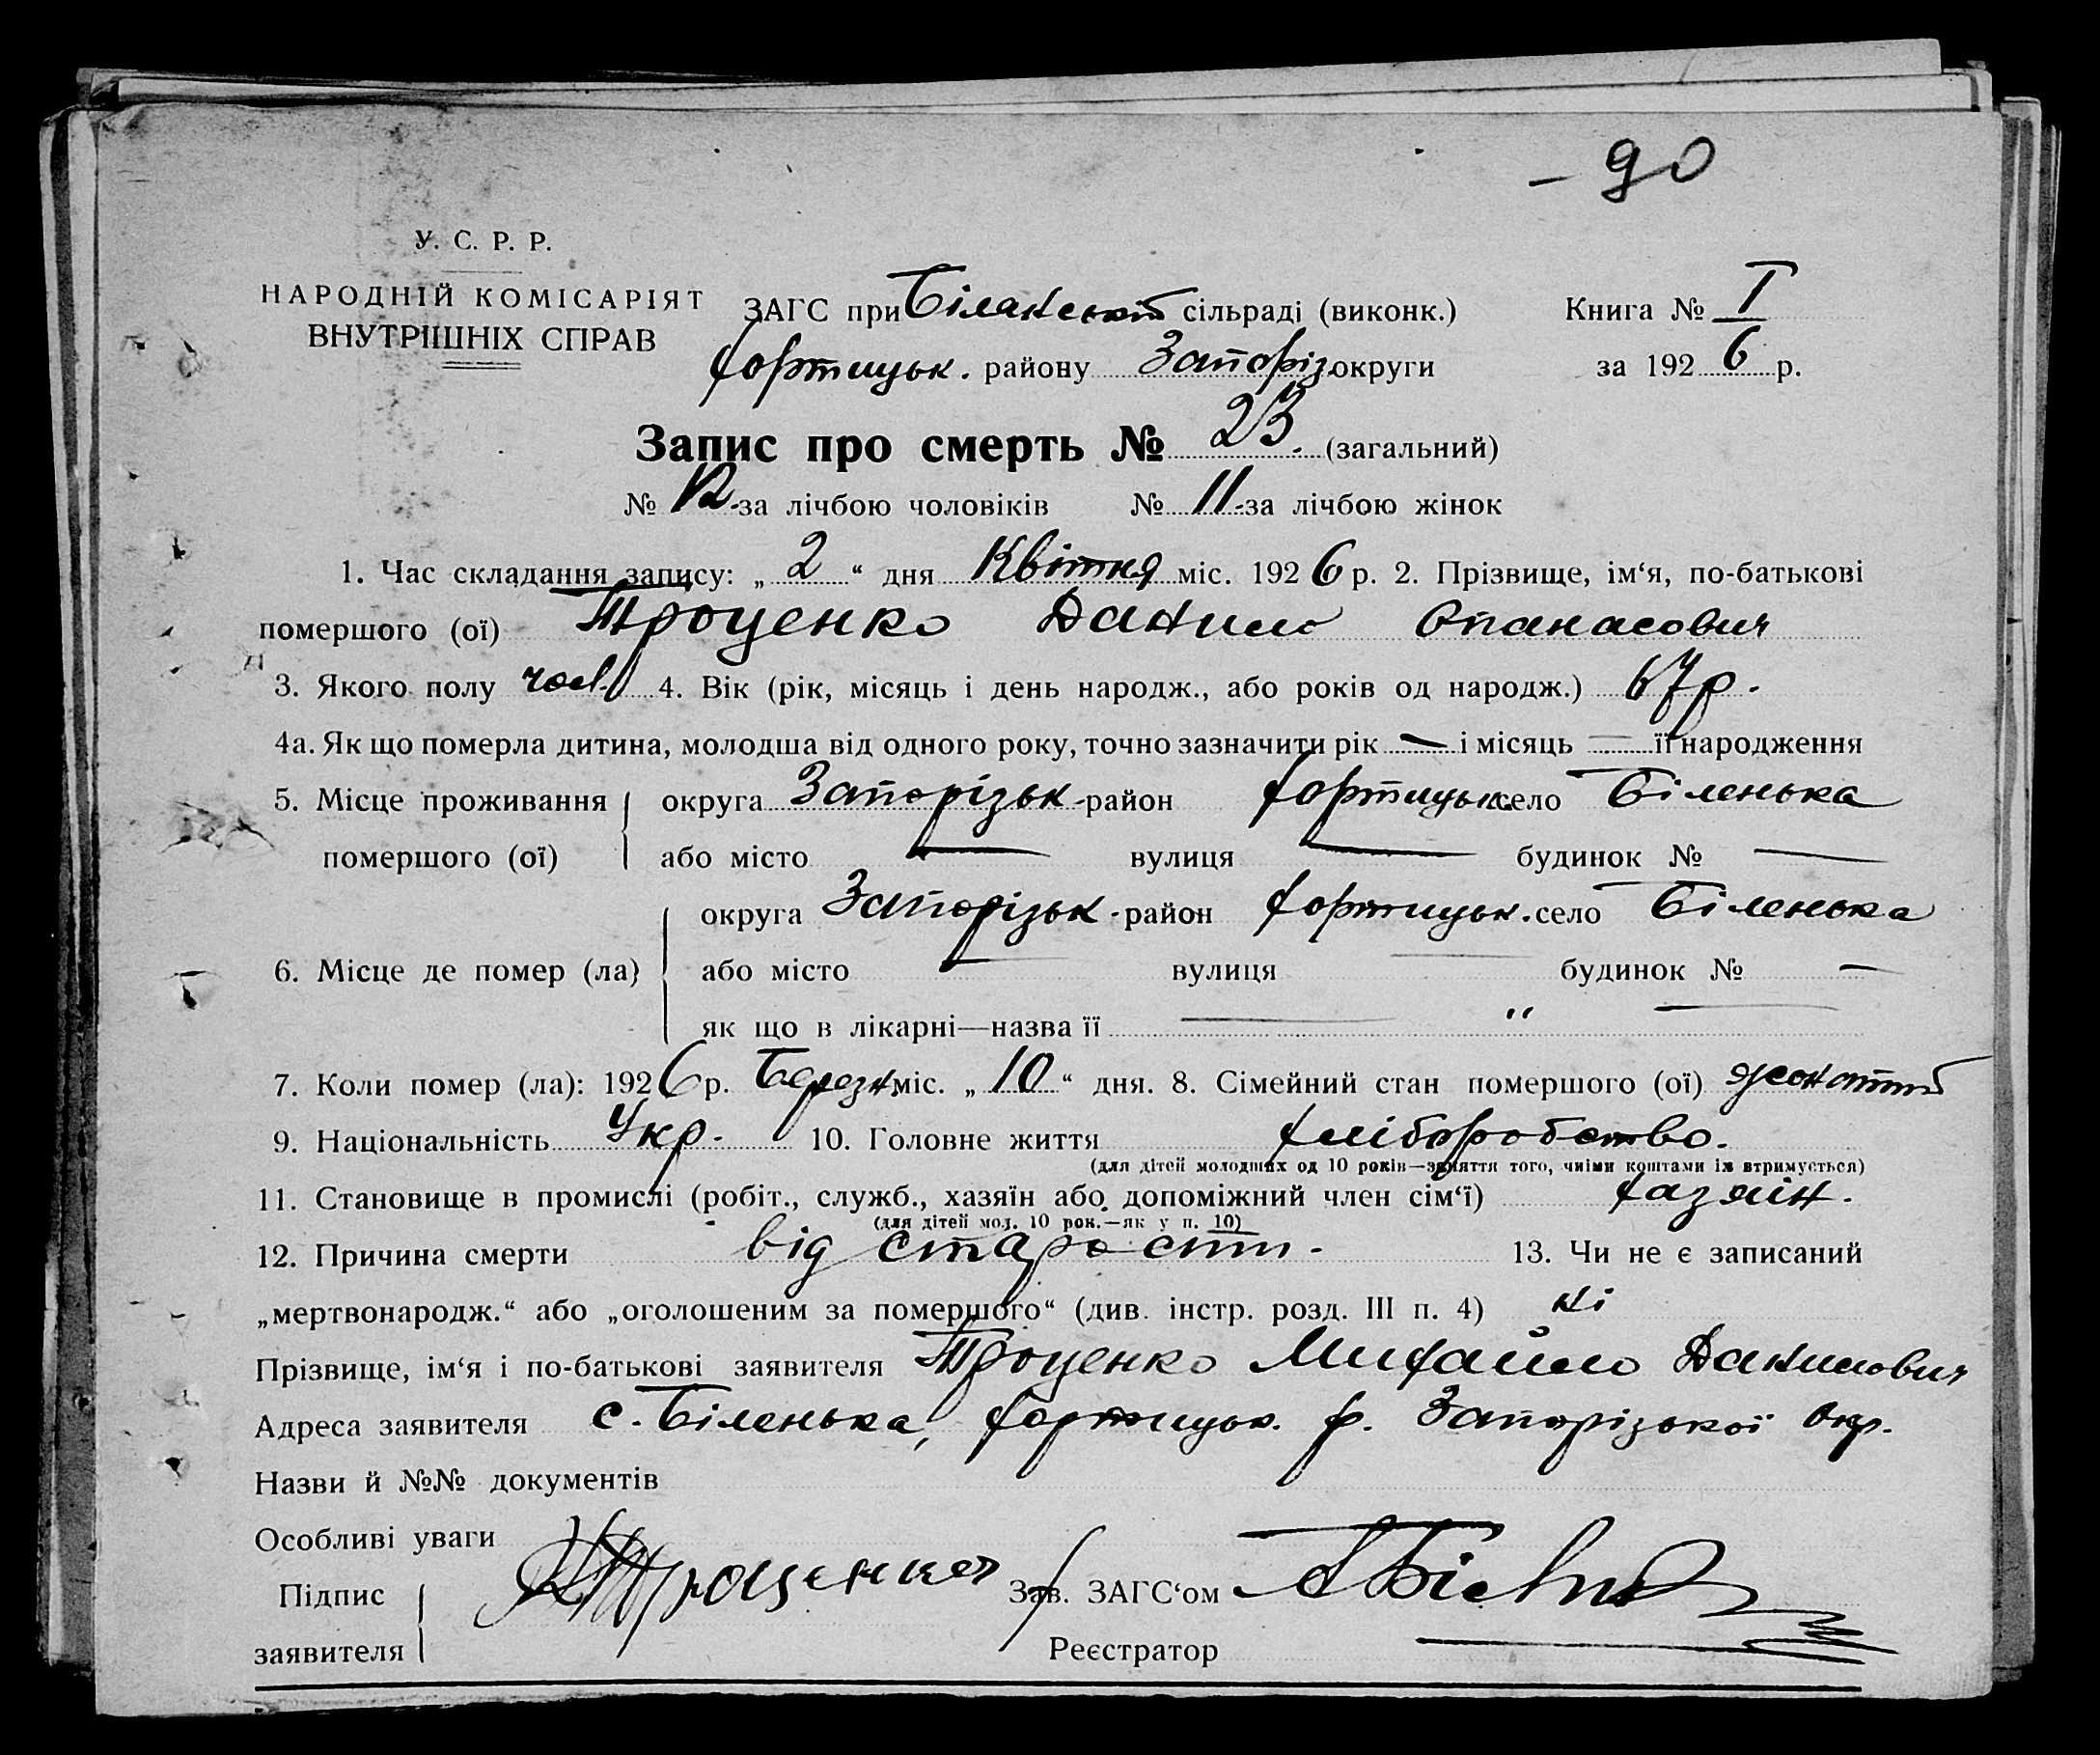 – 90
У. С. Р. Р.
НАРОДНІЙ КОМІСАРІЯТ
ВНУТРІШНІХ СПРАВ
ЗАГС при Біланській сільраді (виконк.) Книга № I
Хортицьк. району Запоріз. округи за 1926 р.
Запис про смерть № 23. (загальний)
№ 12. за лічбою чоловіків № 11. за лічбою жінок
1. Час складання запису: „2“ дня Квітня міс. 1926 р. 2. Прізвище, ім‘я, по-батькові
помершого (ої) Троценко Данило Опанасович
3. Якого полу чол. 4. Вік (рік, місяць і день народж., або років од народж.) 67 р.
4а. Як що померла дитина, молодша від одного року, точно зазначити рік — і місяць — її народження
5. Місце проживання помершого (ої) округа Запорізьк. район Хортицьк. село Біленька
або місто — вулиця — будинок № —
6. Місце де помер (ла) округа Запорізьк. район Хортицьк. село Біленька
або місто — вулиця — будинок № —
як що в лікарні—назва її — “ —
7. Коли помер (ла): 1926 р. Березн. міс. „10“ дня. 8. Сімейний стан помершого (ої) жонатий
9. Національність Укр. 10. Головне життя хліборобство.
(для дітей молодших од 10 років—заняття того, чиїми коштами їх втримується)
11. Становище в промислі (робіт., служб., хазяїн або допоміжний член сім‘ї) хазяїн.
(для дітей мол. 10 рок.—як у п. 10)
12. Причина смерти від старости. 13. Чи не є записаний
„мертвонародж.“ або „оголошеним за помершого“ (див. інстр. розд. III п. 4) ні
Прізвище, ім‘я і по-батькові заявителя Троценко Михайло Данилович
Адреса заявителя с. Біленька, Хортицьк. р. Запорізької Окр.
Назви й №№ документів
Особливі уваги
Підпис заявителя Троценко Зав. ЗАГС‘ом
Реєстратор